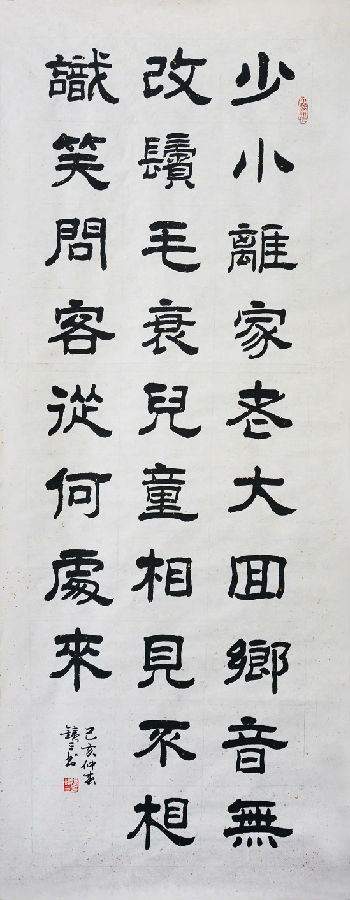 少小離家老大囬鄉音無
改鬢毛衰兒童相見不相
識笑問客從何處來
己亥仲春